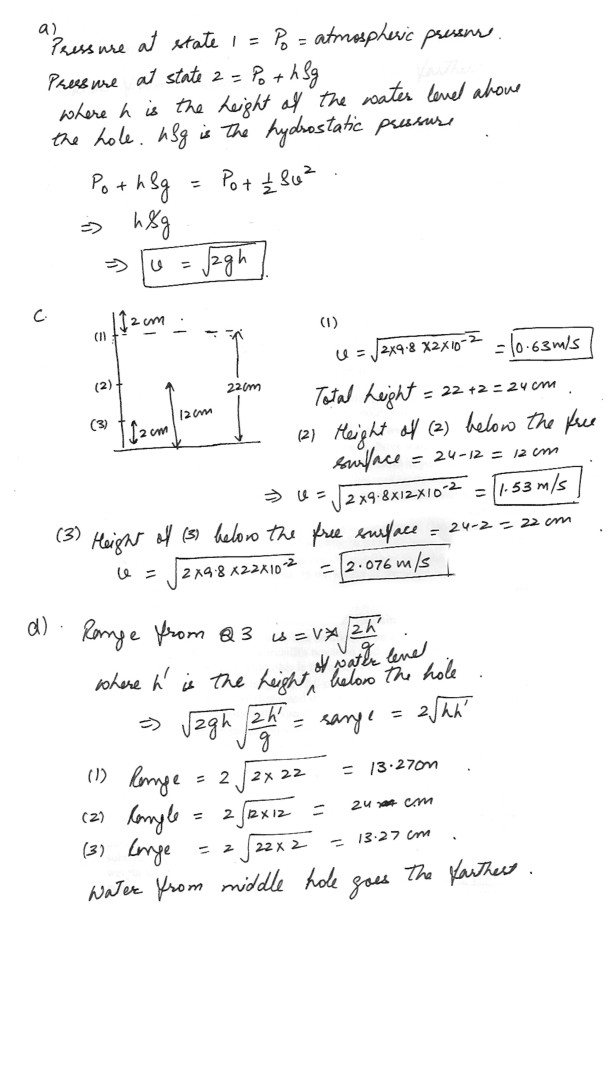 a)
Pressure at state 1 = P₀ = atmospheric pressure.
Pressure at state 2 = P₀ + hρg
where h is the height of the water level above
the hole. hρg is the hydrostatic pressure
P₀ + hρg = P₀ + ½ρv²
⇒ hρg
⇒ v = √2gh
c.
2cm
(1)
(2)
(3)
2cm
12cm
22cm
(1)
v = √2×9.8×2×10⁻² = 0.63m/s
Total height = 22+2 = 24cm.
(2) Height of (2) below the free
surface = 24-12 = 12 cm
⇒ v = √2×9.8×12×10⁻² = 1.53 m/s
(3) Height of (3) below the free surface = 24-2 = 22 cm
v = √2×9.8×22×10⁻² = 2.076 m/s
d). Range from Q3 is = V×√2h'/g.
where h' is the height of water level below the hole.
⇒ √2gh √2h'/g = range = 2√hh'
(1) Range = 2√2×22 = 13.27cm.
(2) Rangle = 2√12×12 = 24 cm
(3) Range = 2√22×2 = 13.27 cm.
Water from middle hole goes the farthest.